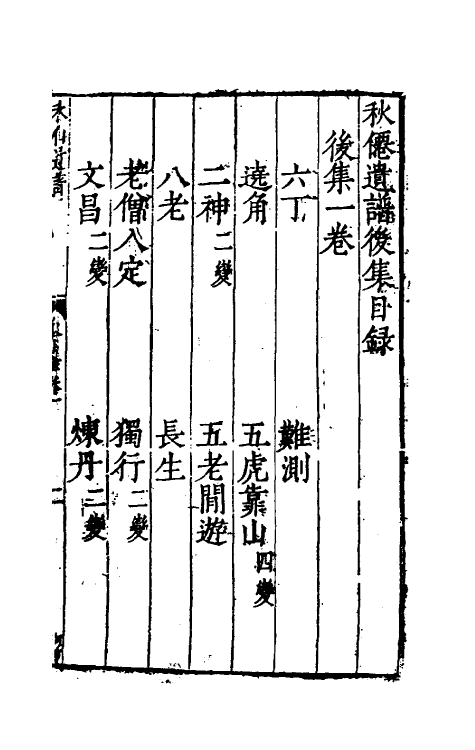 秋僊遺譜後集目録
後集一卷
六丁　難測
遶角　五虎靠山四變
二神二變　五老閒遊
八老　長生
老僧入定　獨行二變
文昌二變　煉丹二變